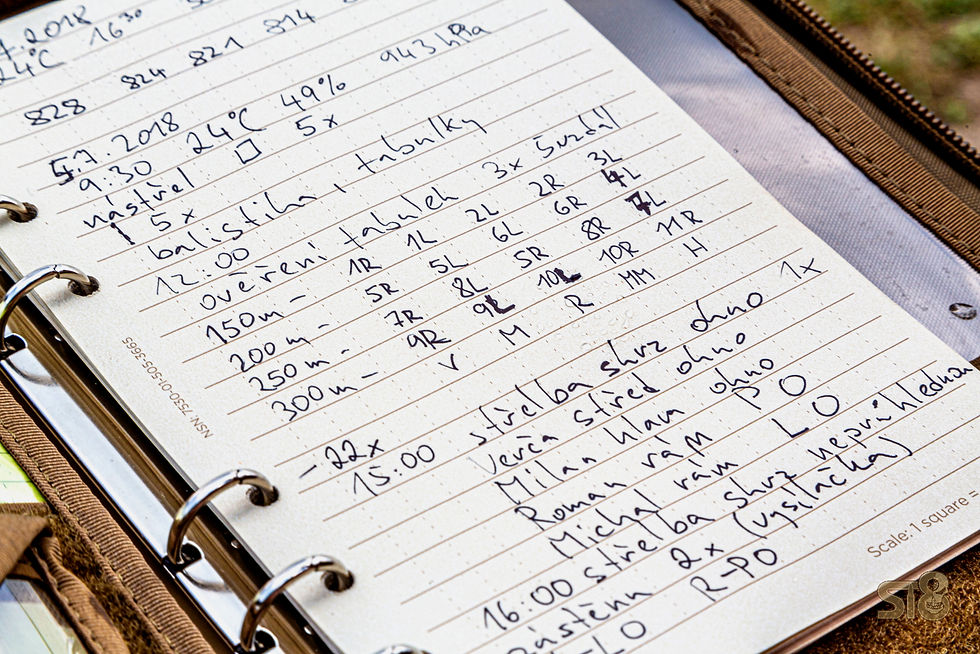 .7.2018 16³⁰
24°C
828 824 821 814 8
5.7.2018
9:30 24°C 49% 943 hPa
nástřel □ 5x
5x
balistika, tabulky
12:00
ověření tabulek 3x 5 vzdál
150m - 1R 1L 2L 2R 3L
200m - 5R 5L 6L 6R 4L
250m - 7R 8L 5R 8R 7L
300m - 9R 9L 10L 10R 11R
V M R MM H
-22x
15:00 střelba skrz okno 1x
Verča střed okno
Milan hlav okno
Roman rám PO
Michal rám LO
16:00 střelba skrz neprůhlednou
zástěnu 2x (vysílačka)
-LO R-PO
NSN: 7530-01-505-3665
Scale: 1 square =
ST8